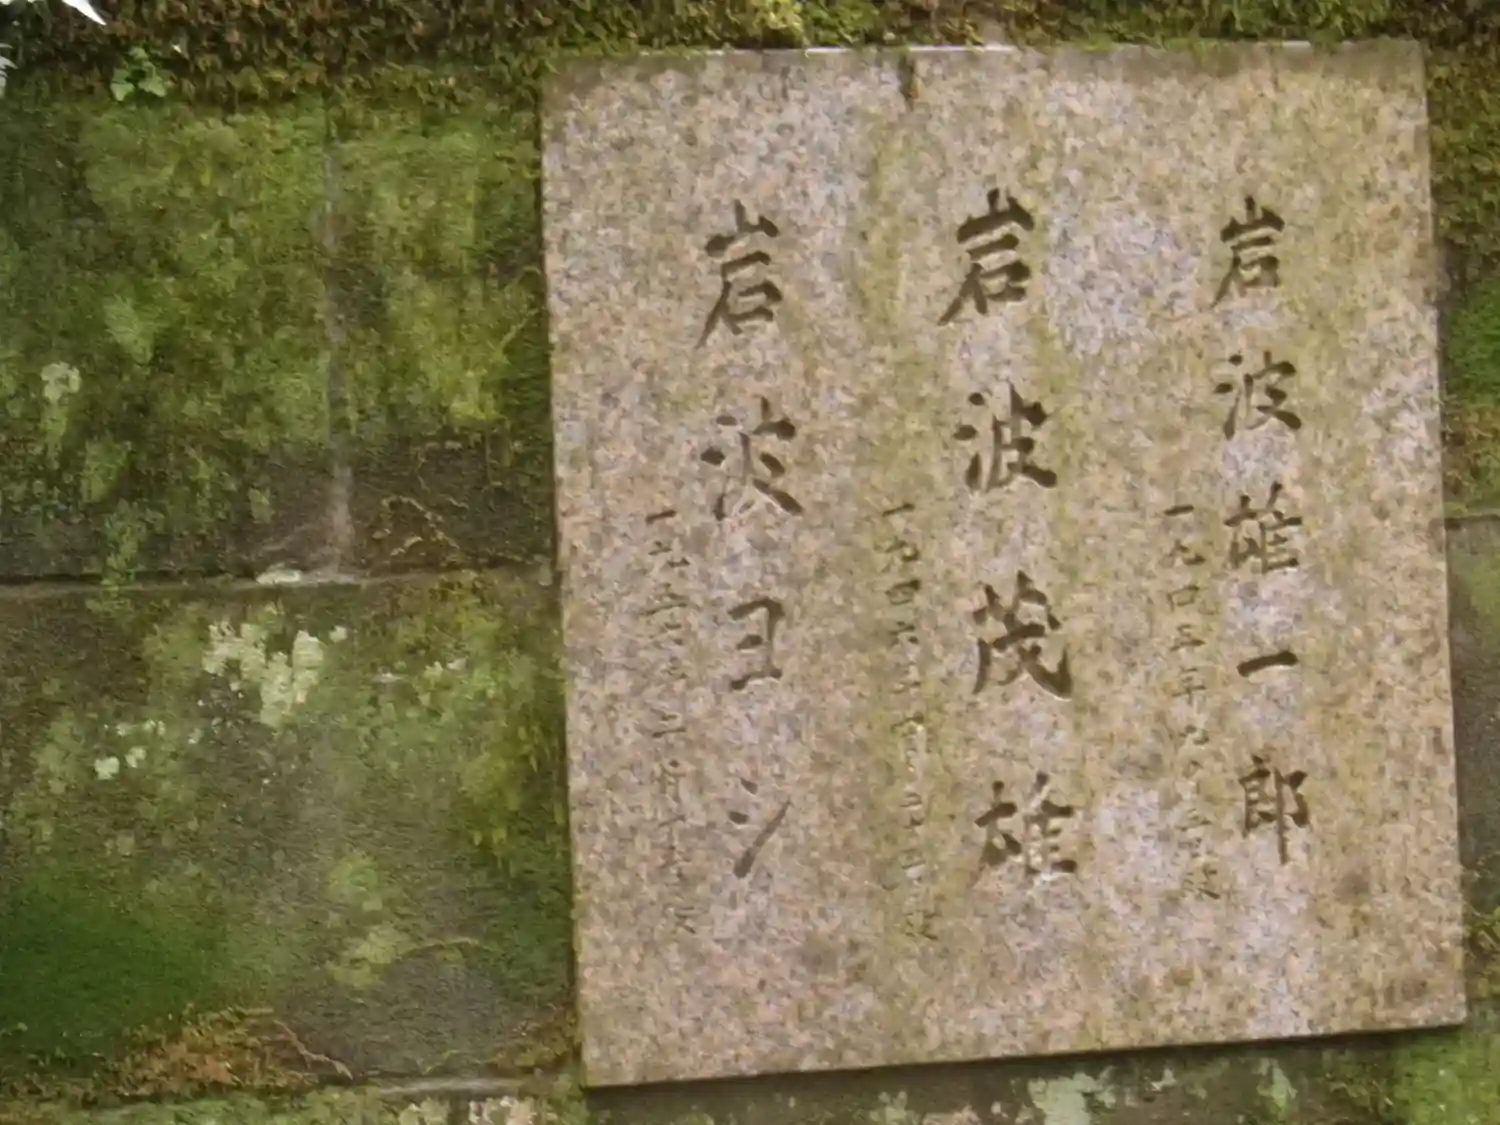 岩波雄一郎
一九四五年九月三日歿
岩波茂雄
一九四六年四月二十五日歿
岩波ヨシ
一九五六年二月